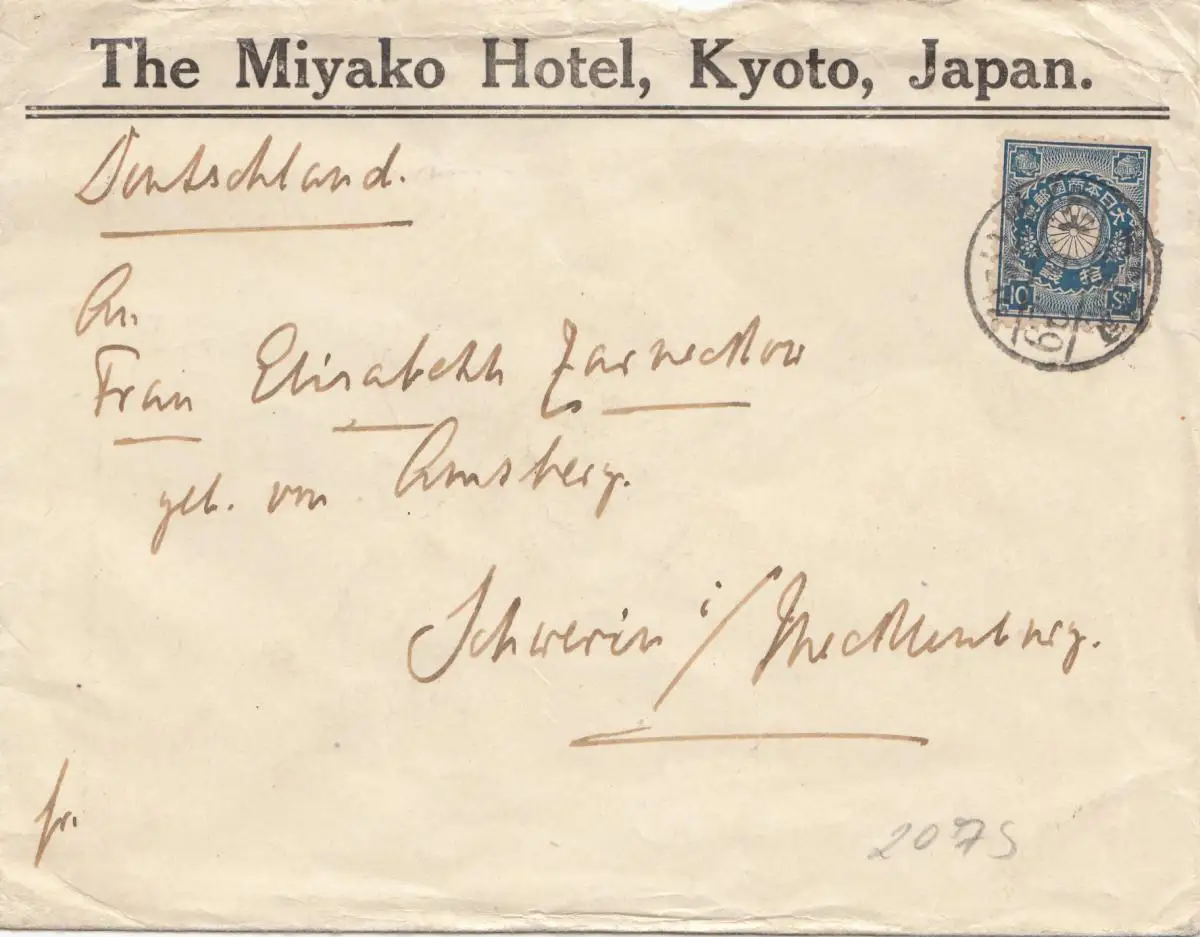 The Miyako Hotel, Kyoto, Japan.
Deutschland.
大日本帝国郵便
拾銭
10 SN
An
Frau Elisabeth Zarneckow
geb. von Amsberg.
Schwerin i/Mecklenburg.
fr.
2075